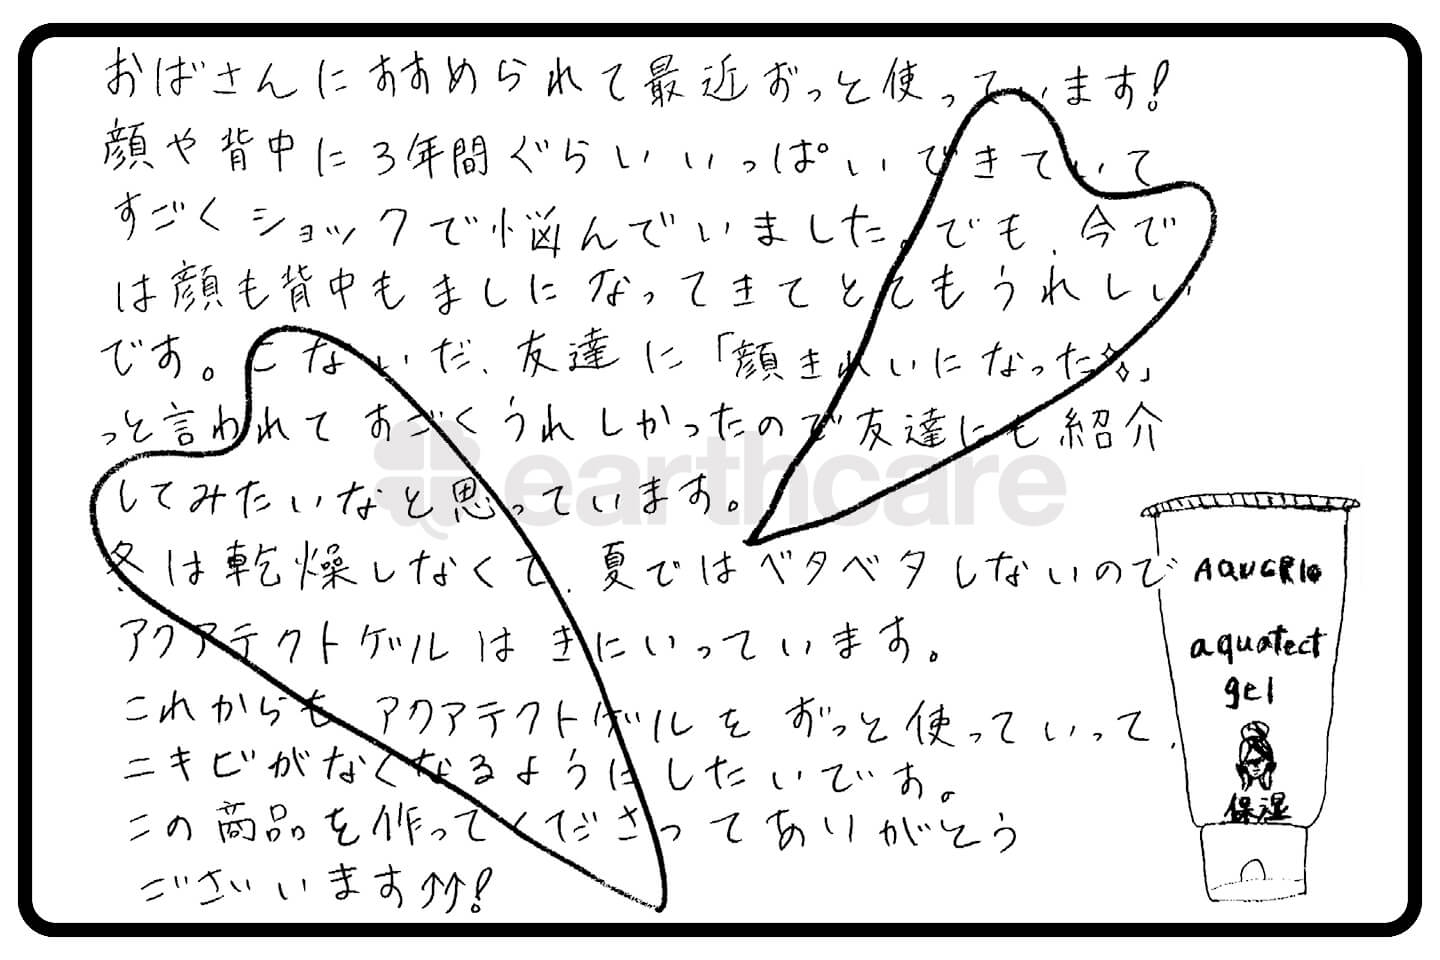 おばさんにすすめられて最近ずっと使っています!
顔や背中に3年間ぐらいいっぱいできていて
すごくショックで悩んでいました。でも、今で
は顔も背中もましになってきてとてもうれしい
です。こないだ、友達に「顔きれいになった✧」
っと言われてすごくうれしかったので友達にも紹介
してみたいなと思っています。
冬は乾燥しなくて、夏ではベタベタしないので
アクアテクトゲルはきにいっています。
これからもアクアテクトゲルをずっと使っていって、
ニキビがなくなるようにしたいです。
この商品を作ってくださってありがとう
ございます↑↑!
earthcare
AQUCRIO
aquatect
gel
保湿